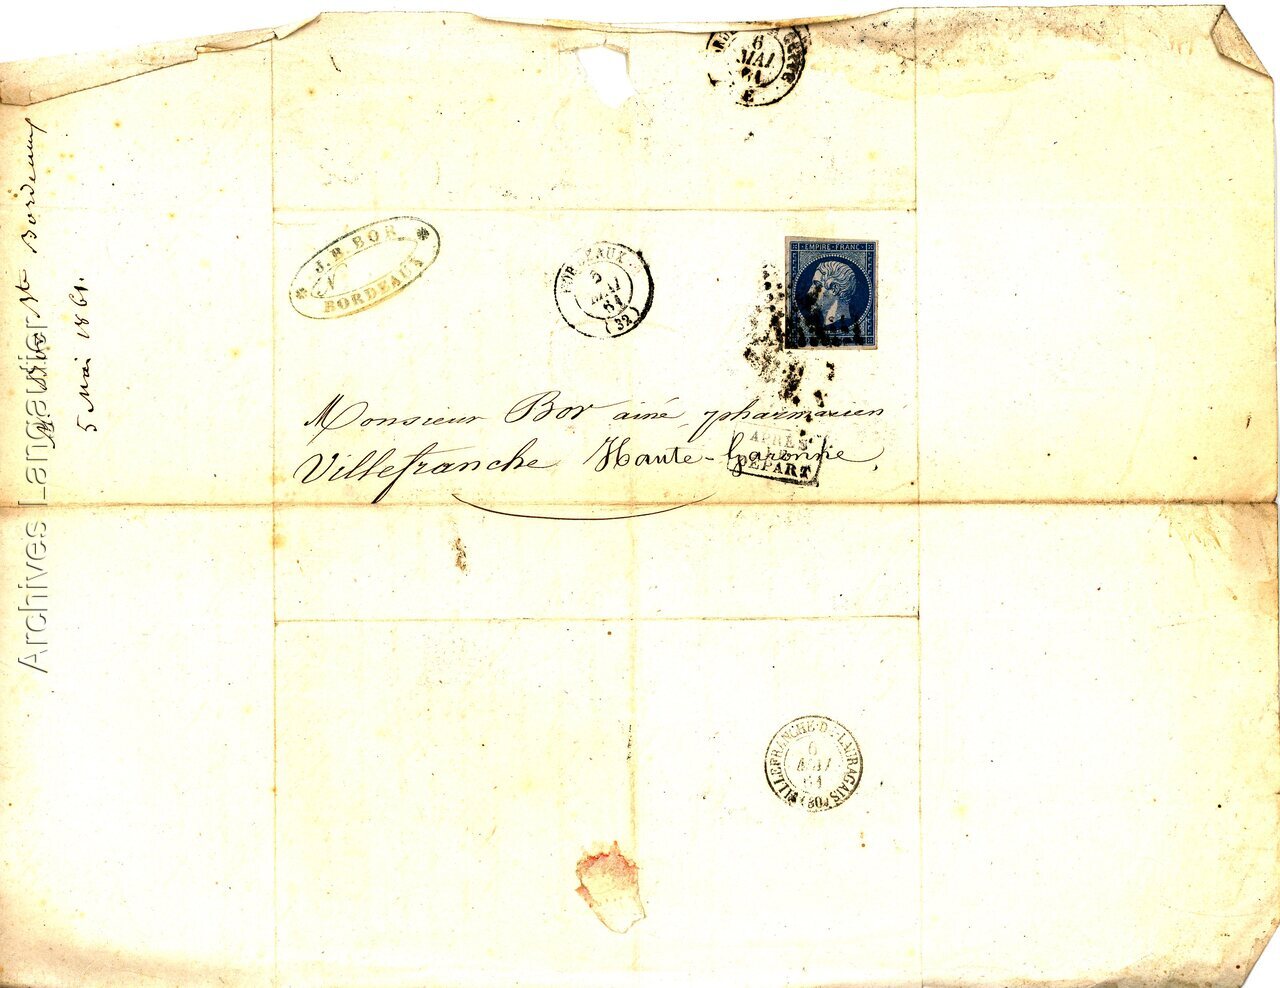 6
MAI
61
E
Bordeaux
5 Mai 1861.
Archives Langautier
J. B. BOR
BORDEAUX
BORDEAUX
5
MAI
61
(32)
EMPIRE FRANC
Monsieur Bor ainé, pharmacien
Villefranche Haute-Garonne,
APRÈS
LE
DÉPART
VILLEFRANCHE-D-LAURAGAIS
6
MAI
61
(30)